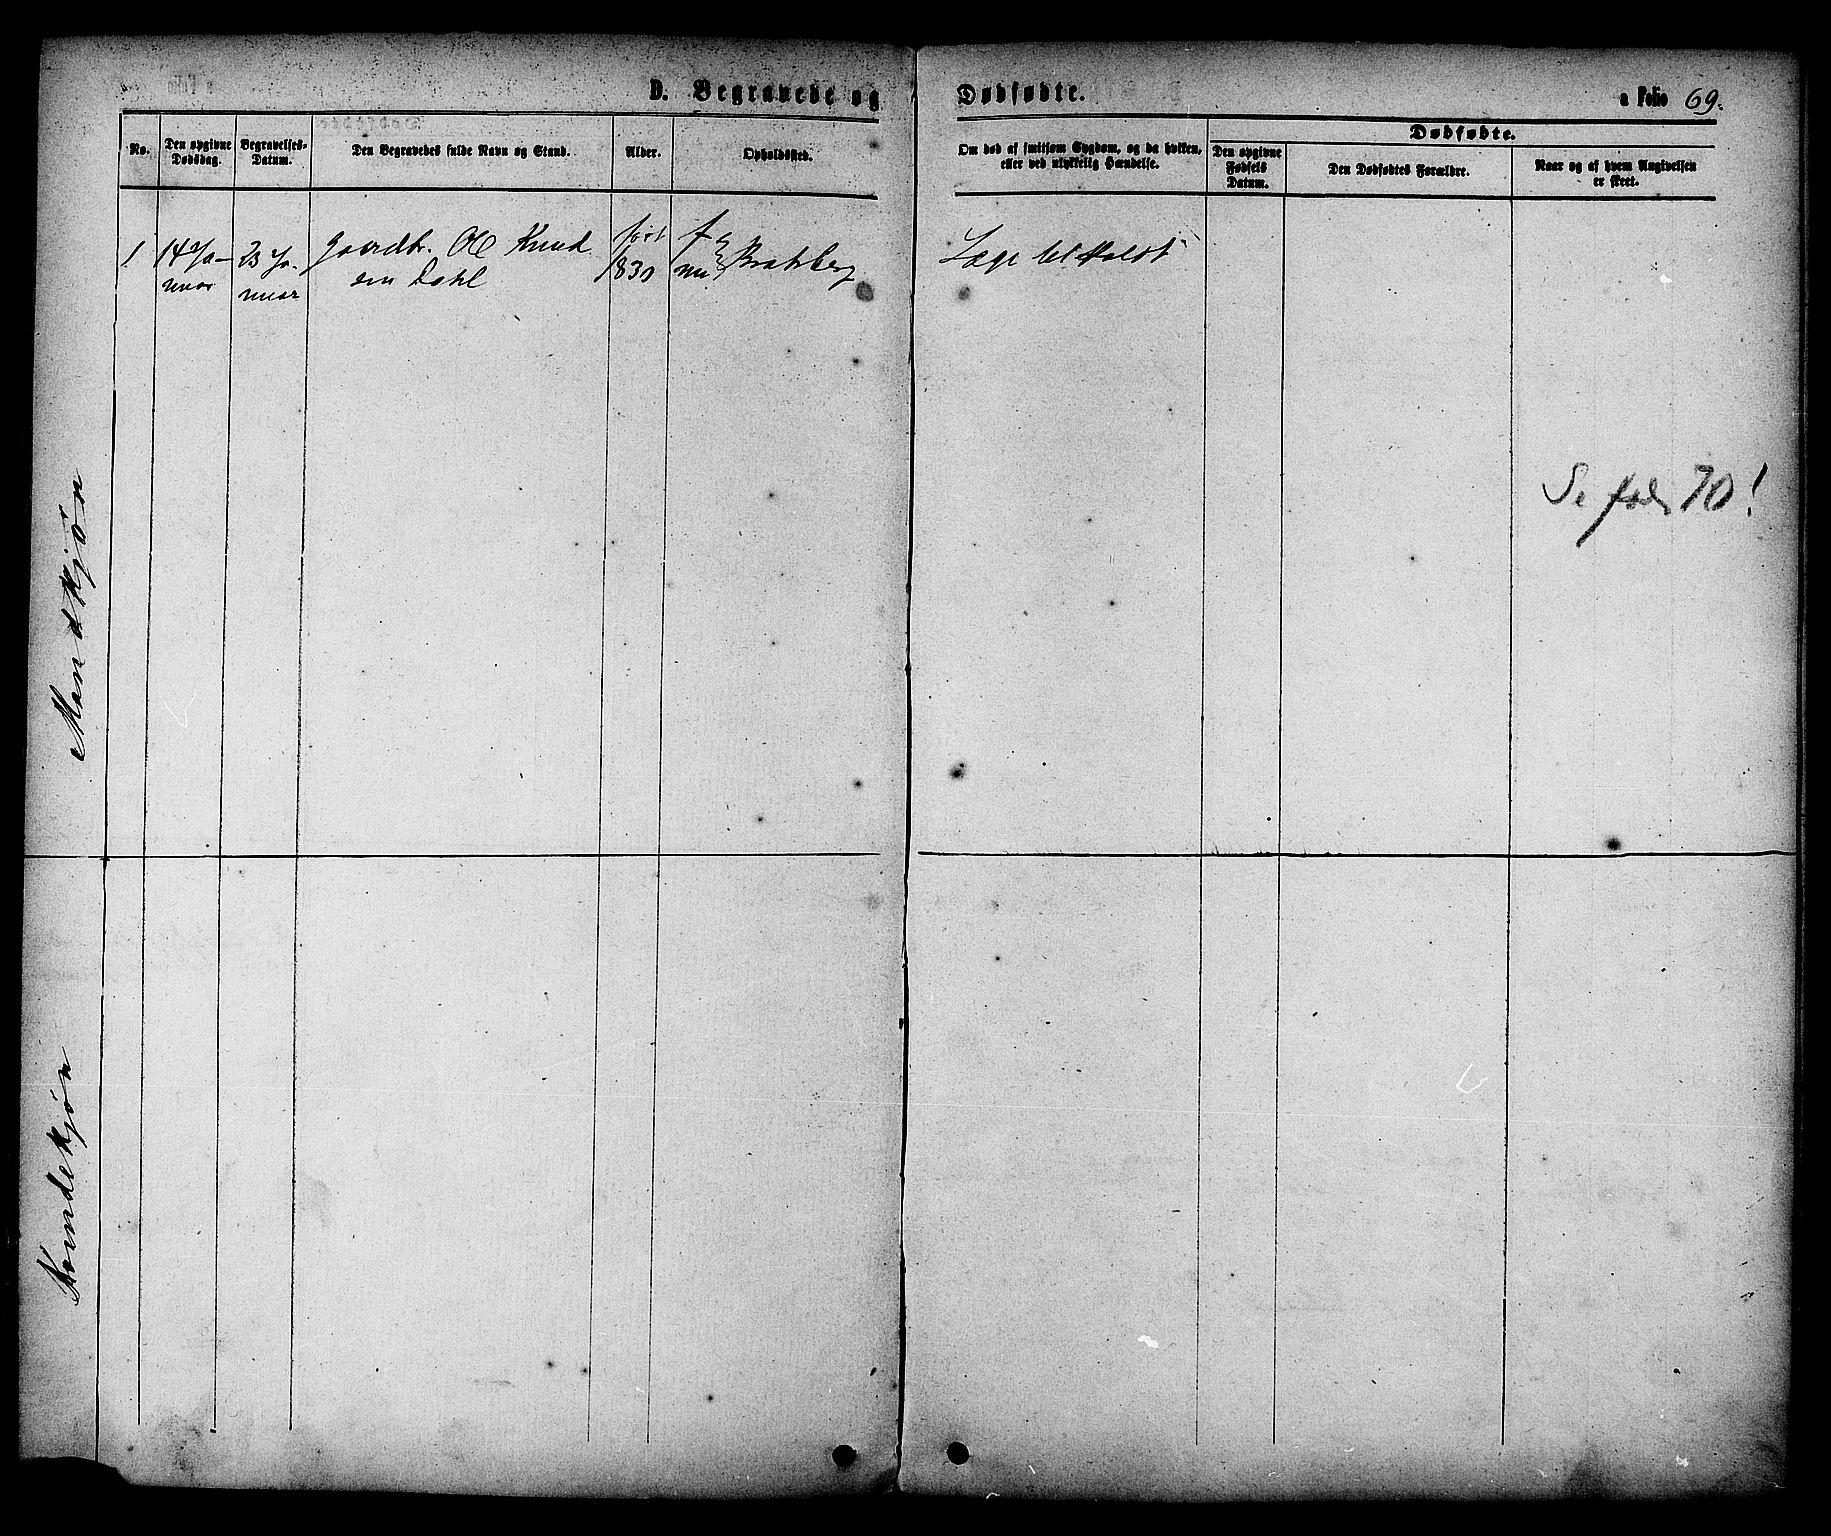 D. Begravede og Dødfødte.
a Folio 69.
No.
Den opgivne Dødsdag.
Begravelses-Datum.
Den Begravedes fulde Navn og Stand.
Alder.
Opholdssted.
Om død af smitsom Sygdom, og da hvilken,
eller ved ulykkelig Hændelse.
Dødfødte.
Den opgivne Fødsels Datum.
Den Dødfødtes Forældre.
Naar og af hvem Angivelsen
er skeet.
1
14 Ja-
nuar
23 Ja-
nuar
Gaardbr. Ole Knud
sen Dahl
født
1830
f
nu
Bratsberg
Læge
Se fol. 70!
Mandkjön
Kvindekjøn